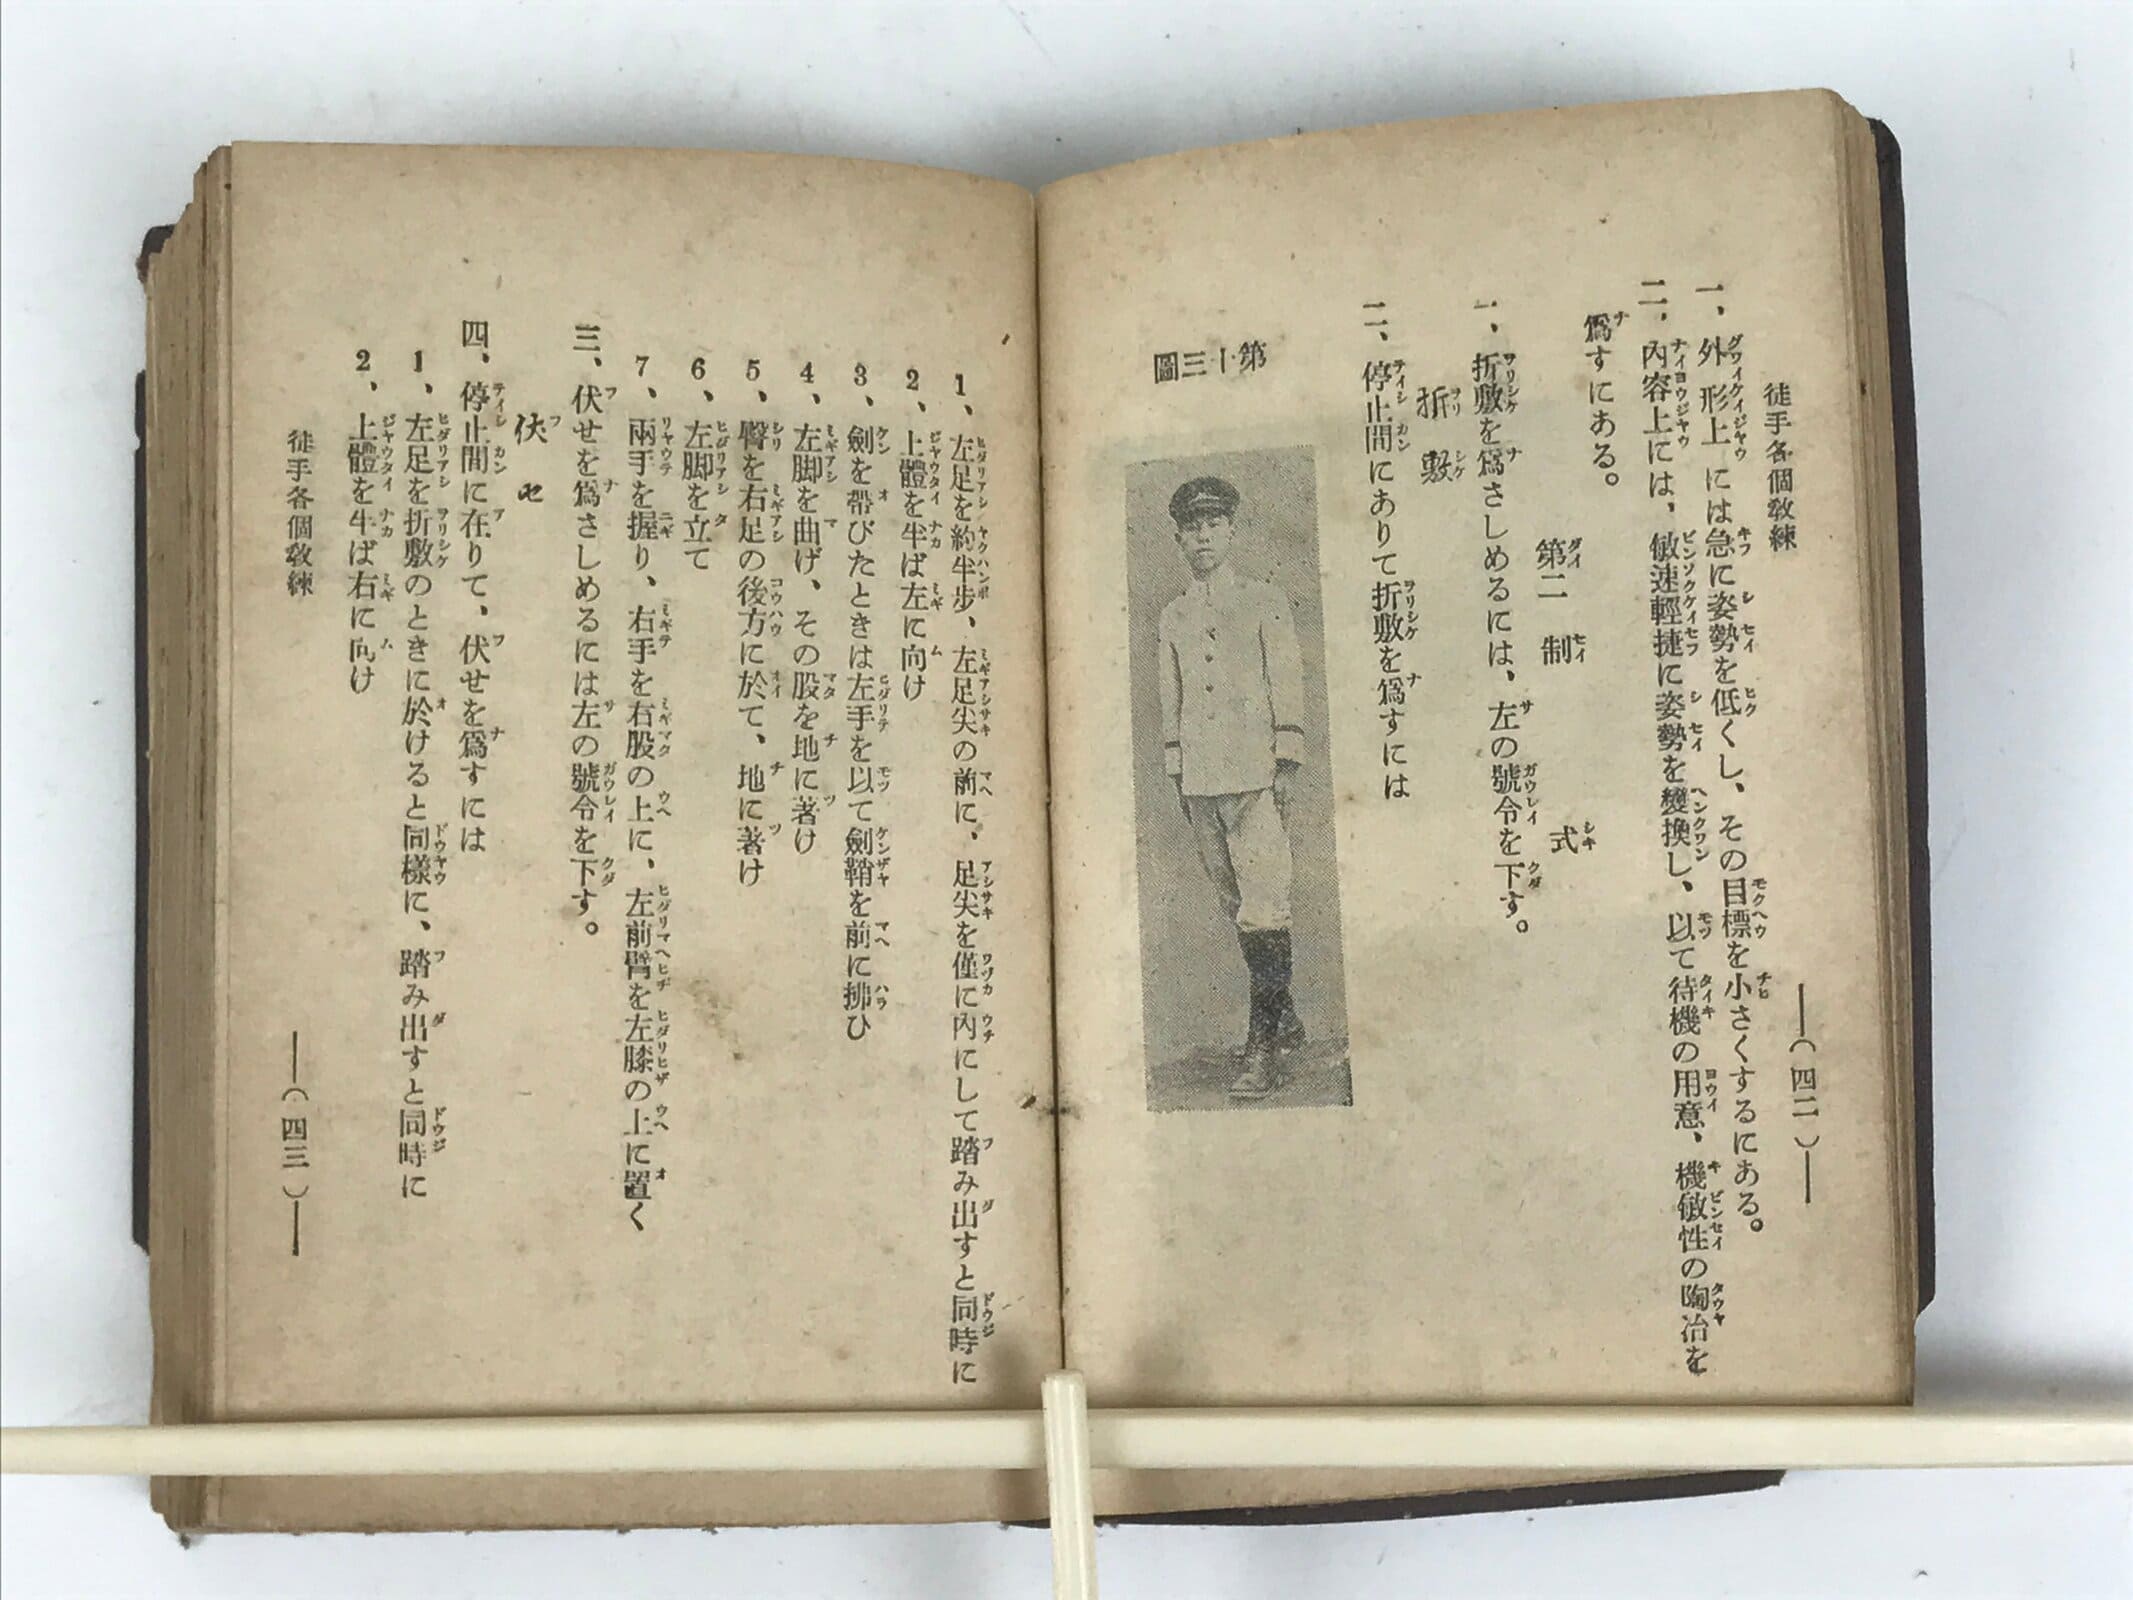 徒手各個教練
―(四二)―
一、外形上には急に姿勢を低くし、その目標を小さくするにある。
二、內容上には、敏速輕捷に姿勢を變換し、以て待機の用意、機敏性の陶冶を
爲すにある。
第二 制式
一、折敷を爲さしめるには、左の號令を下す。
折敷
二、停止間にありて折敷を爲すには
第十三圖
1、左足を約半步、左足尖の前に、足尖を僅に內にして踏み出すと同時に
2、上體を半ば左に向け
3、劍を帶びたときは左手を以て劍鞘を前に拂ひ
4、左脚を曲げ、その股を地に著け
5、臀を右足の後方に於て、地に著け
6、左脚を立て
7、兩手を握り、右手を右股の上に、左前臂を左膝の上に置く
三、伏せを爲さしめるには左の號令を下す。
伏せ
四、停止間に在りて、伏せを爲すには
1、左足を折敷のときに於けると同樣に、踏み出すと同時に
2、上體を半ば右に向け
徒手各個教練
―(四三)―